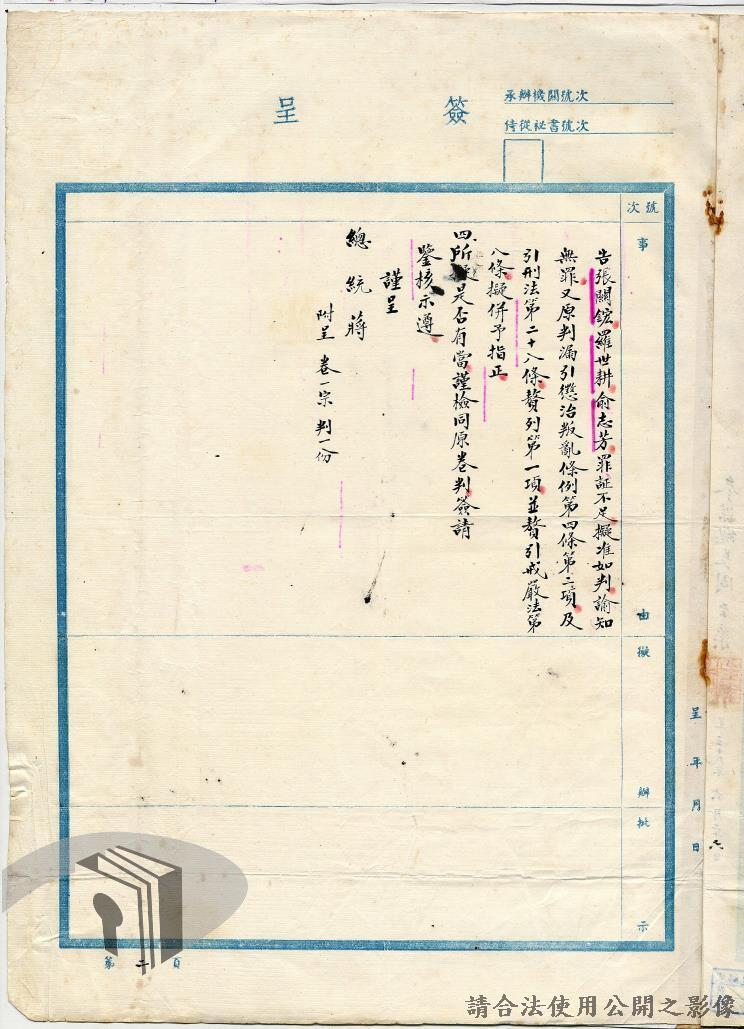 承辦機關號次
侍從祕書號次
簽呈
號次
事由
擬辦
批示
告張闢鋐羅世耕俞志芳罪証不足擬准如判諭知
無罪又原判漏引懲治叛亂條例第四條第二項及
引刑法第二十八條贅列第一項並贅引戒嚴法第
八條擬併予指正
四、所擬是否有當謹檢同原卷判簽請
鑒核示遵
謹呈
總統蔣
附呈卷一宗判一份
呈年月日
第二頁
請合法使用公開之影像